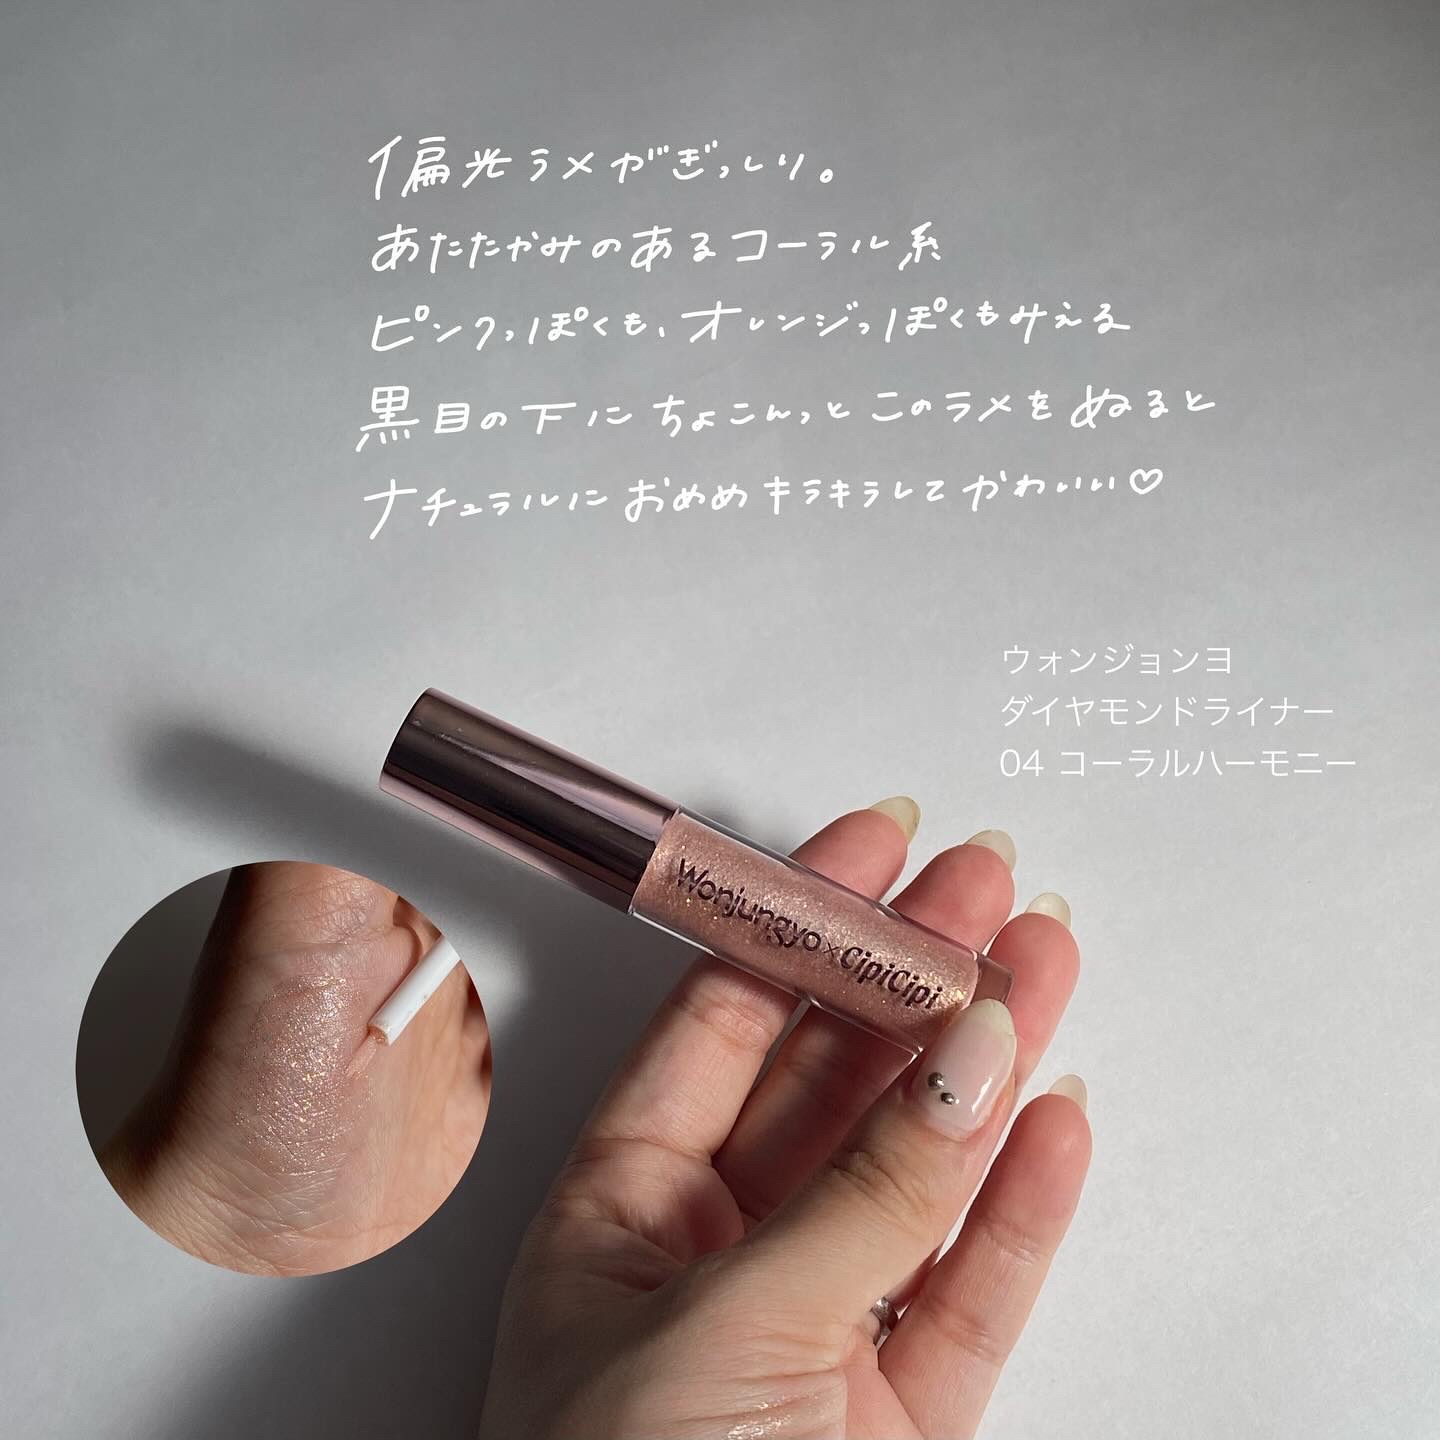 偏光ラメがぎっしり。
あたたかみのあるコーラル系
ピンクっぽくも、オレンジっぽくもみえる
黒目の下にちょこんっとこのラメをぬると
ナチュラルにおめめキラキラしてかわいい♡
ウォンジョンヨ
ダイヤモンドライナー
04 コーラルハーモニー
Wonjungyo×CipiCipi